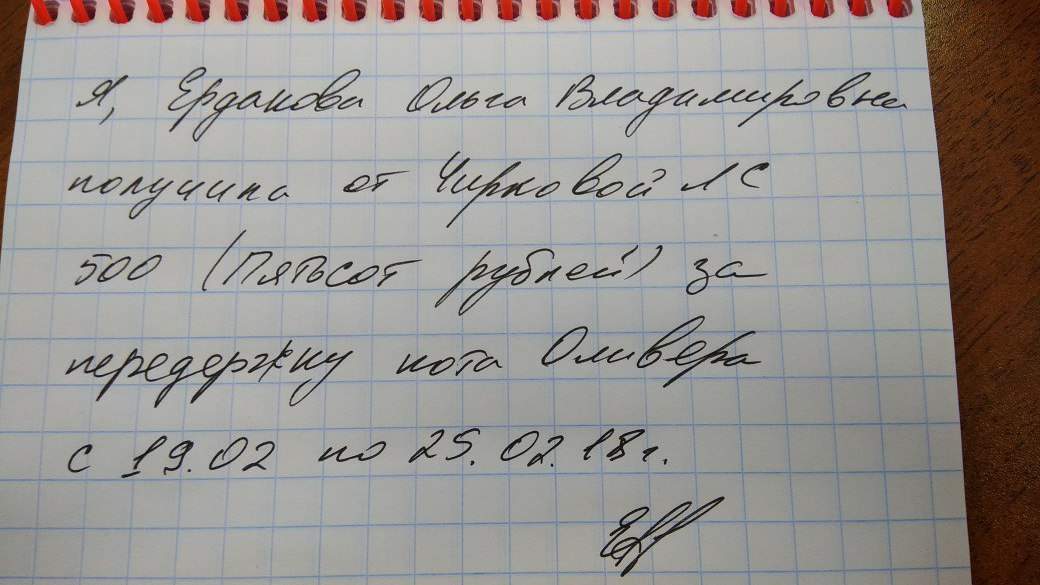 Я, Ердакова Ольга Владимировна
получила от Чирковой ЛС
500 (Пятьсот рублей) за
передержку кота Оливера
с 19.02 по 25.02.18г.